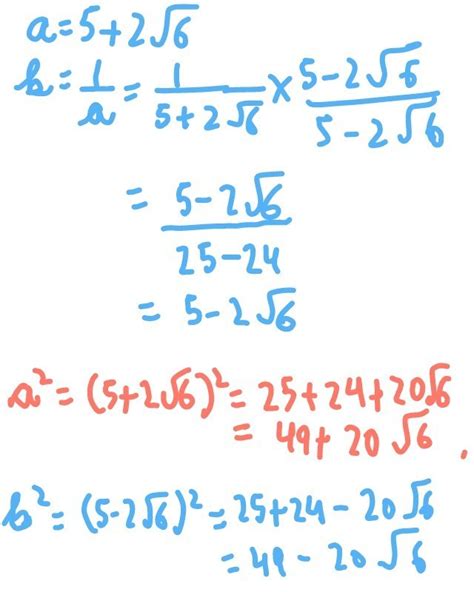 a = 5 + 2√6
b = 1/a = 1/(5 + 2√6) × (5 - 2√6)/(5 - 2√6)
= (5 - 2√6)/(25 - 24)
= 5 - 2√6
a² = (5 + 2√6)² = 25 + 24 + 20√6
= 49 + 20√6.
b² = (5 - 2√6)² = 25 + 24 - 20√6
= 49 - 20√6